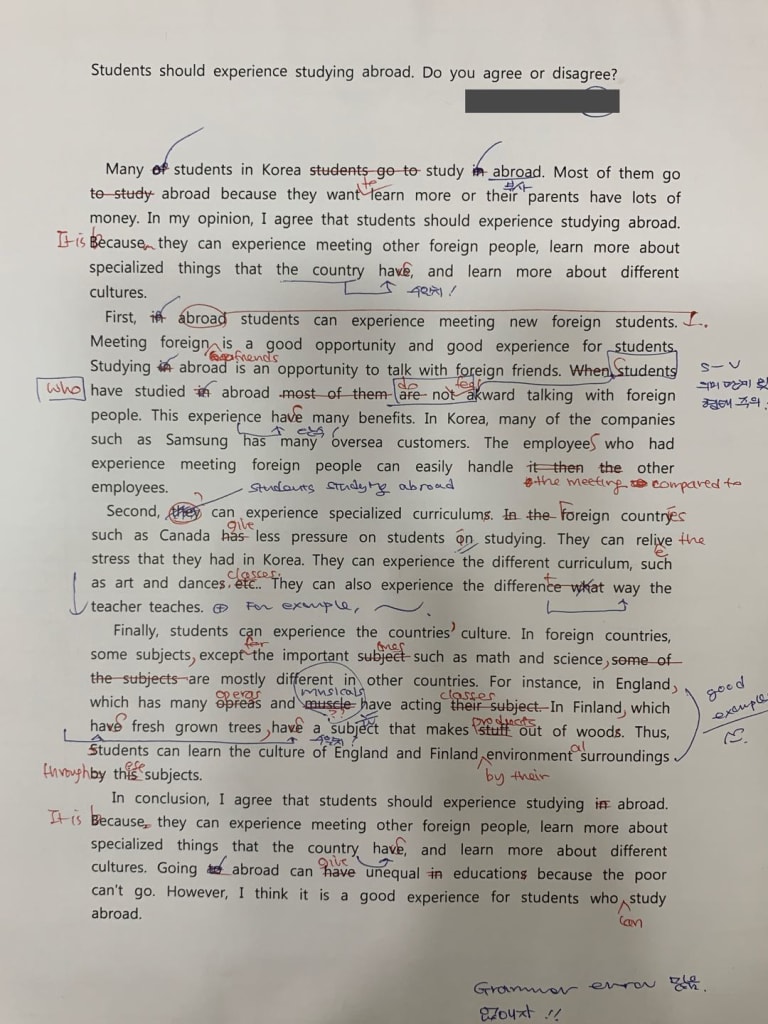 Students should experience studying abroad. Do you agree or disagree?
Many of students in Korea students go to study in abroad. Most of them go
부사
to study abroad because they want to learn more or their parents have lots of
money. In my opinion, I agree that students should experience studying abroad.
It is b
Because, they can experience meeting other foreign people, learn more about
specialized things that the country have, and learn more about different
s
cultures.
수일치!
First, in abroad students can experience meeting new foreign students.
Meeting foreign is a good opportunity and good experience for students.
friends
Studying in abroad is an opportunity to talk with foreign friends. When Students
S-V
who
have studied in abroad most of them are not akward talking with foreign
do
feel
people. This experience have many benefits. In Korea, many of the companies
s
such as Samsung has many oversea customers. The employees who had
experience meeting foreign people can easily handle it then the other
the meeting compared to
employees.
students studying abroad
Second, they can experience specialized curriculums. In the Foreign countries
give
such as Canada has less pressure on students on studying. They can relive the
e
stress that they had in Korea. They can experience the different curriculum, such
classes.
as art and dances. etc.. They can also experience the difference what way the
t
teacher teaches. ⊕ For example,
Finally, students can experience the countries' culture. In foreign countries,
for
ones
some subjects, except the important subject such as math and science, some of
the subjects are mostly different in other countries. For instance, in England,
operas
musicals
classes
good
example
which has many opreas and muscle have acting their subject. In Finland, which
products
have fresh grown trees, have a subject that makes stuff out of woods. Thus,
s
수일치?
Students can learn the culture of England and Finland environment surroundings
al
by their
through
by this subjects.
ese
In conclusion, I agree that students should experience studying in abroad.
It is b
Because, they can experience meeting other foreign people, learn more about
specialized things that the country have, and learn more about different
s
give
cultures. Going to abroad can have unequal in educations because the poor
can't go. However, I think it is a good experience for students who study
can
abroad.
Grammar error